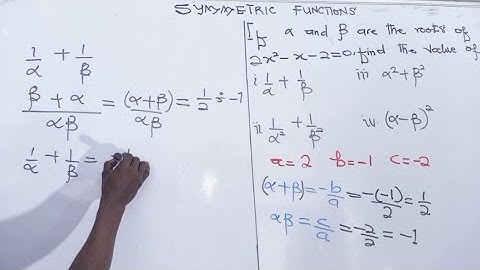 SYMMETRIC FUNCTIONS
1/α + 1/β
β + α/αβ = (α+β)/αβ = 1/2 ÷ -1
1/α + 1/β =
If α and β are the roots of
2x² - x - 2 = 0, find the value of
i. 1/α + 1/β iii α² + β²
ii. 1/α² + 1/β² iv. (α - β)²
a = 2 b = -1 c = -2
(α+β) = -b/a = -(-1)/2 = 1/2
αβ = c/a = -2/2 = -1